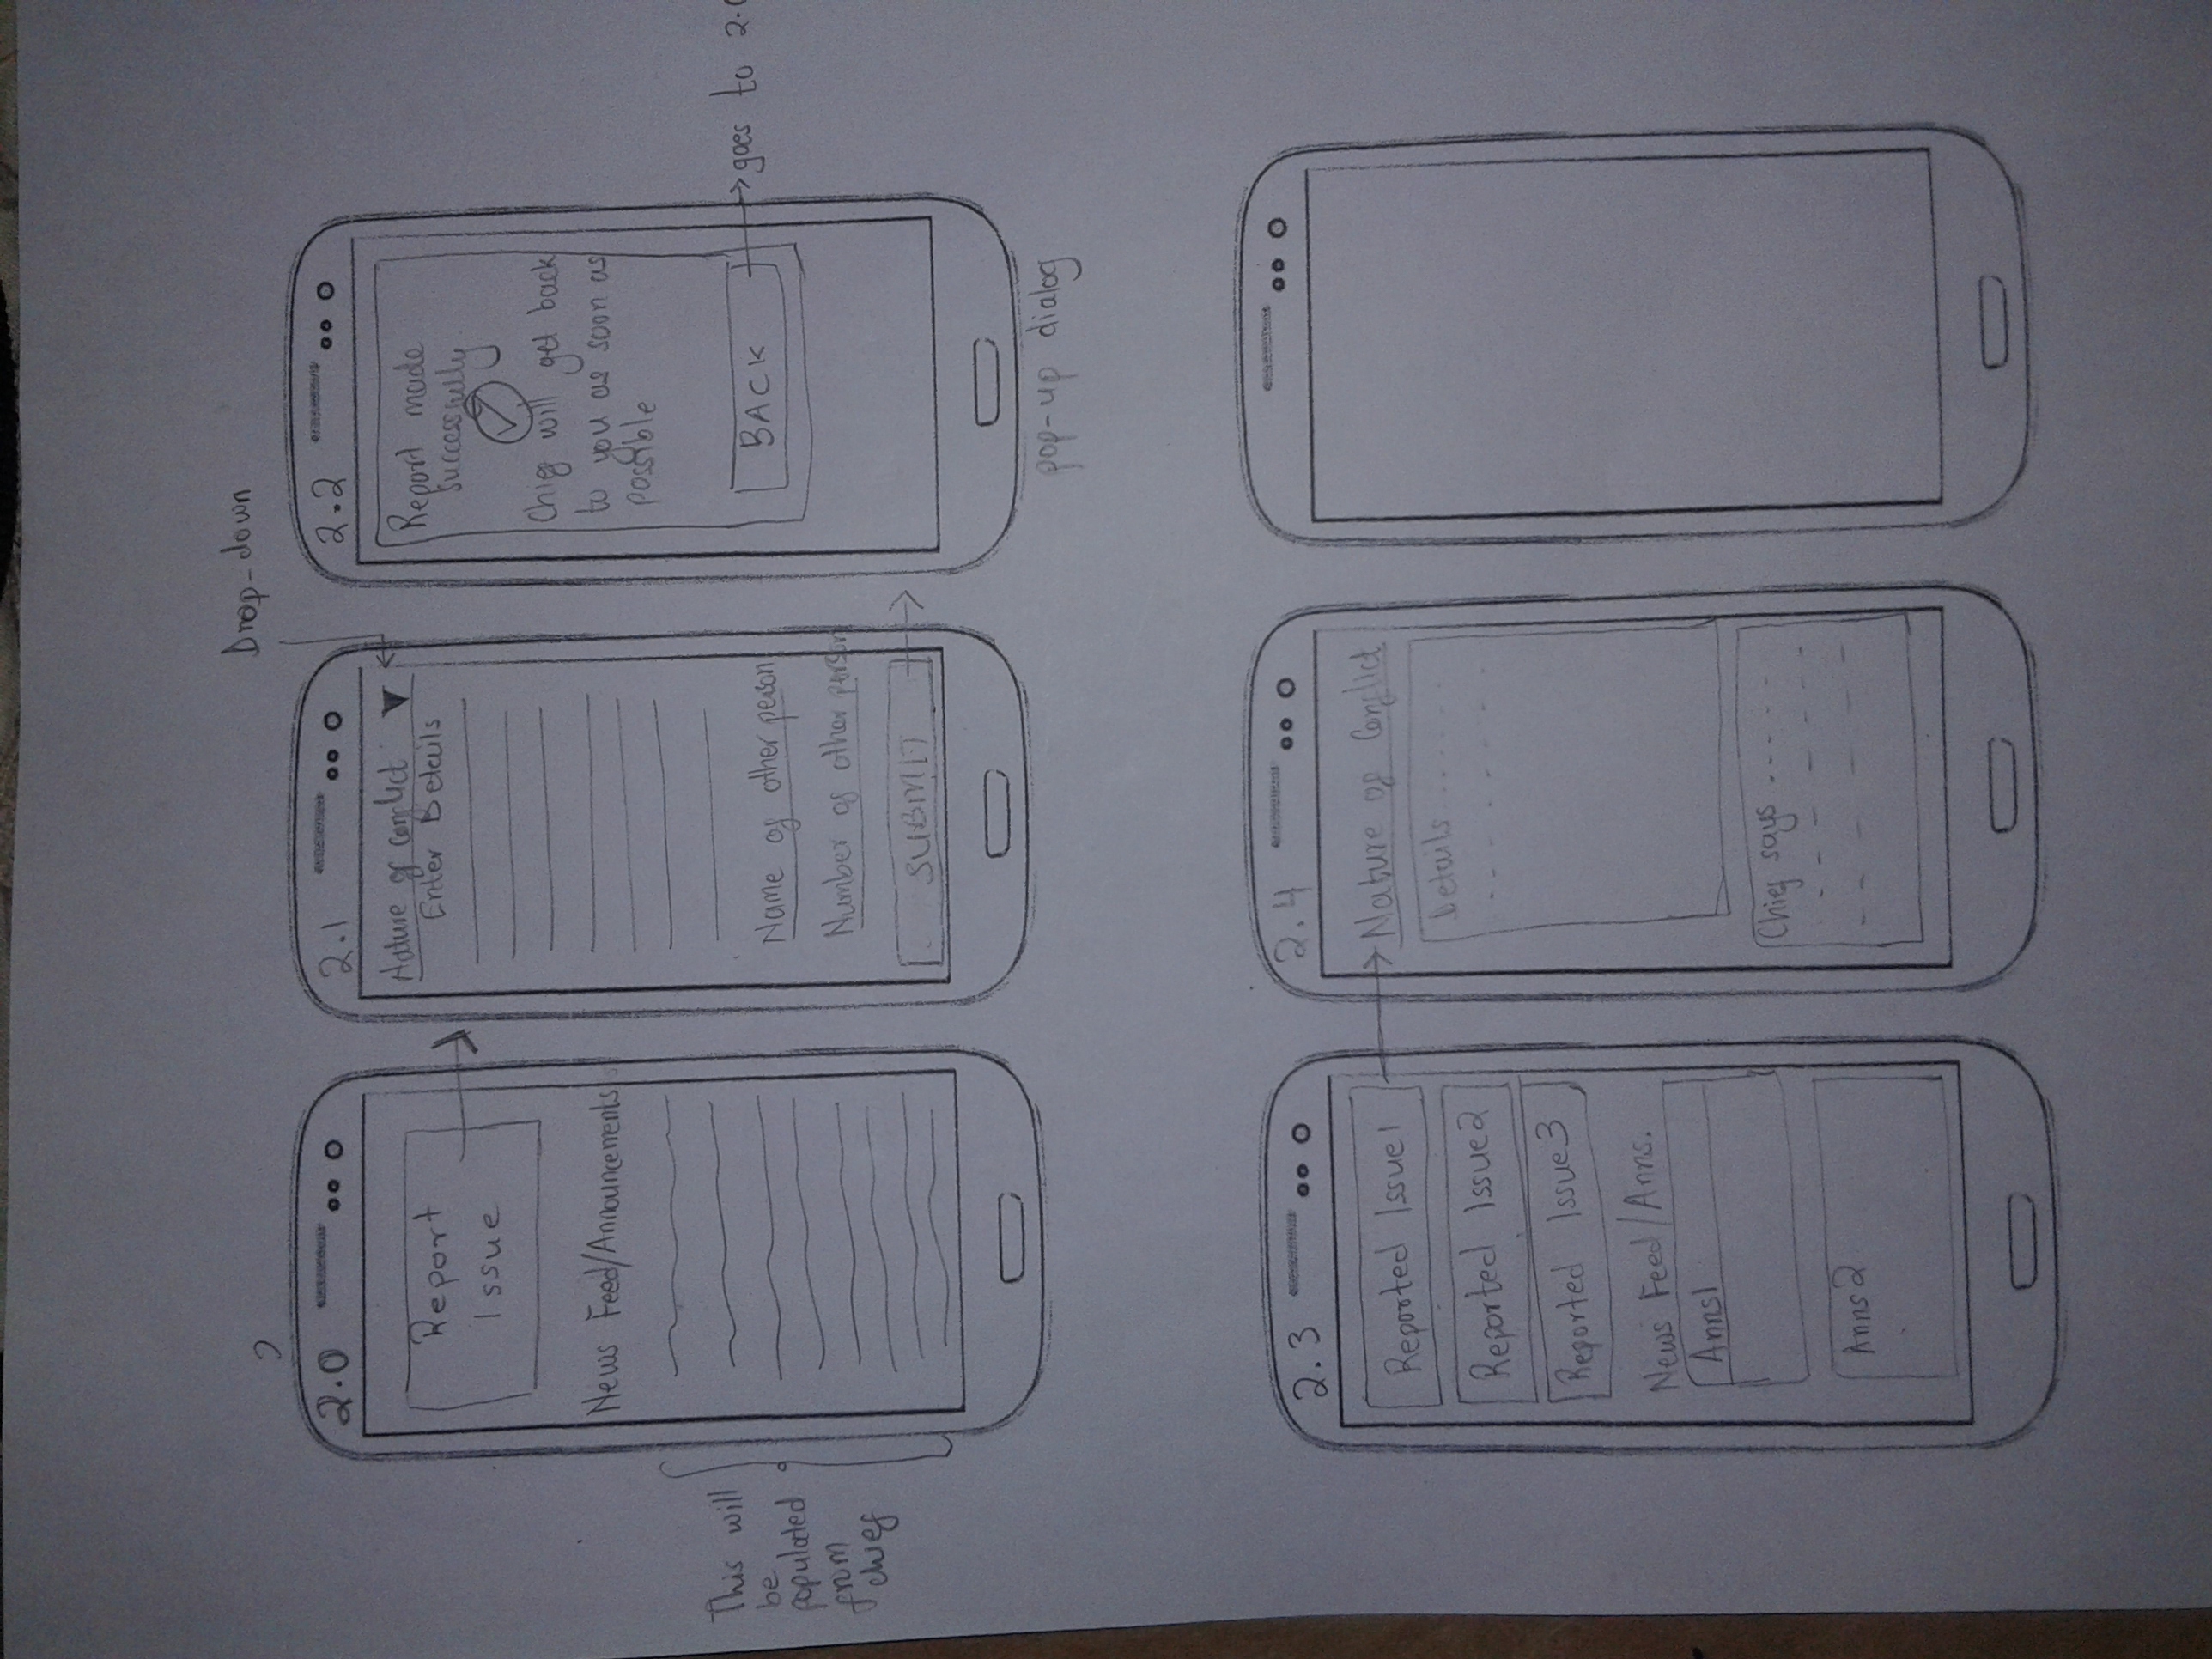 Drop-down
2.0
Report
Issue
News Feed/Announcements
This will
be
populated
from
chief
2.1
Nature of conflict
Enter Details
Name of other person
Number of other person
SUBMIT
2.2
Report made
successfully
Chief will get back
to you as soon as
possible
BACK
goes to 2.0
pop-up dialog
2.3
Reported Issue1
Reported Issue2
Reported Issue3
News Feed/Anns.
Anns1
Anns2
2.4
Nature of Conflict
Details .......
Chief says .....